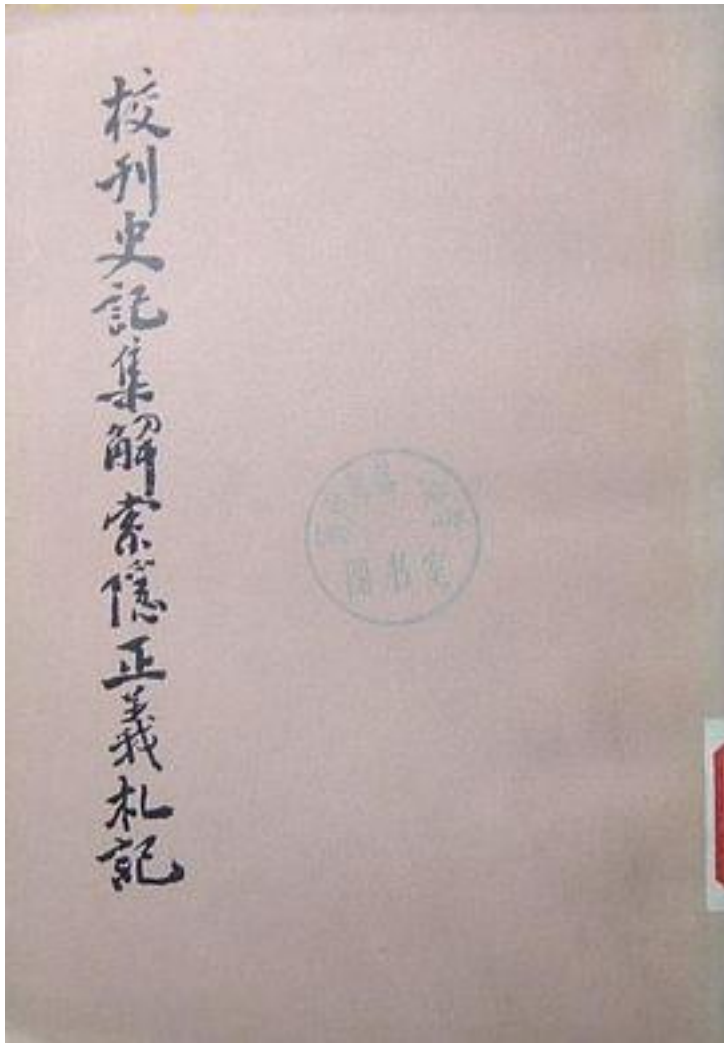 校刊史記集解索隱正義札記
圖书室